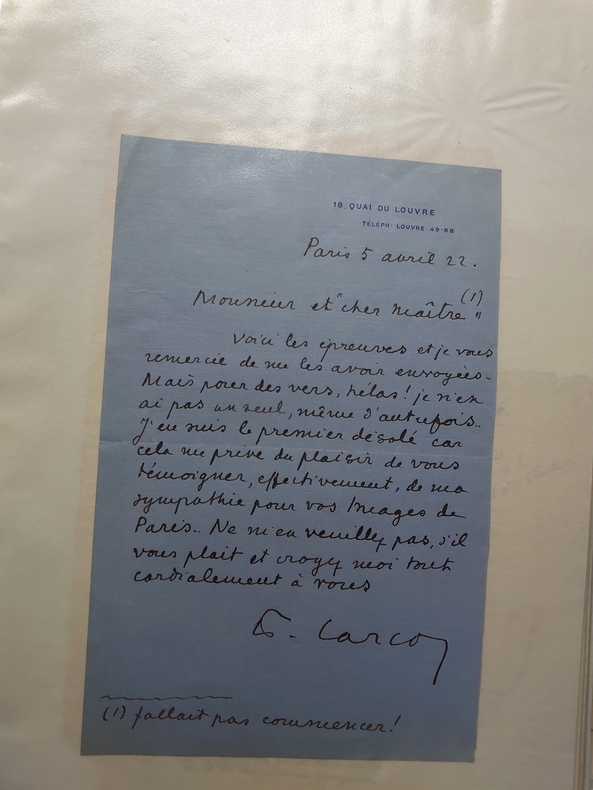 18, QUAI DU LOUVRE
TÉLÉPH: LOUVRE 49-88
Paris 5 avril 22.
(1)
Monsieur et "cher Maître"
Voici les épreuves et je vous
remercie de me les avoir envoyées.
Mais pour des vers, hélas! je n'en
ai pas un seul, même d'autrefois..
J'en suis le premier désolé car
cela me prive du plaisir de vous
témoigner, effectivement, de ma
sympathie pour vos Images de
Paris.. Ne m'en veuillez pas, s'il
vous plait et croyez moi tout
cordialement à vous
F. Carco
(1) fallait pas commencer!